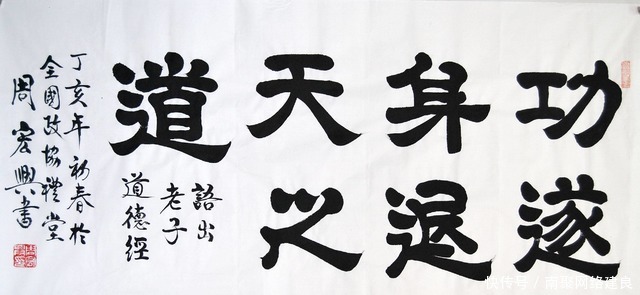 功遂
身退
天之
道
語出
老子
道德經
丁亥年初春於
全國政協禮堂
周宏興書
快传号/南陬网络建良